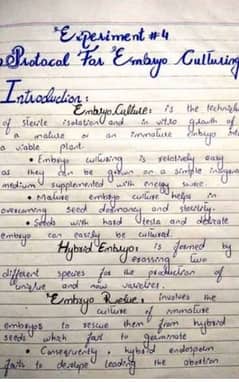 "Experiment #4
Protocal For "Embryo Culturing
Introduction:
Embryo Culture: is the technique
of sterile isolation and in vitro growth of
a mature or an immature embryo into
a viable plant.
• Embryo culturing is relatively easy
as they can be grown on a simple inorganic
medium supplemented with energy source.
• Mature embryo culture helps in
overcoming seed dormancy and sterility.
• Seeds with hard testa and delicate
embryo can easily be cultured.
Hybrid Embryo: is formed by
crossing two
different species for the production of
unique and new varieties.
"Embryo Rescue, involves the
culture of immature
embryos to rescue them from hybrid
seeds which fail to germinate
• Consequently, hybrid endosperm
fails to develope leading the abortion